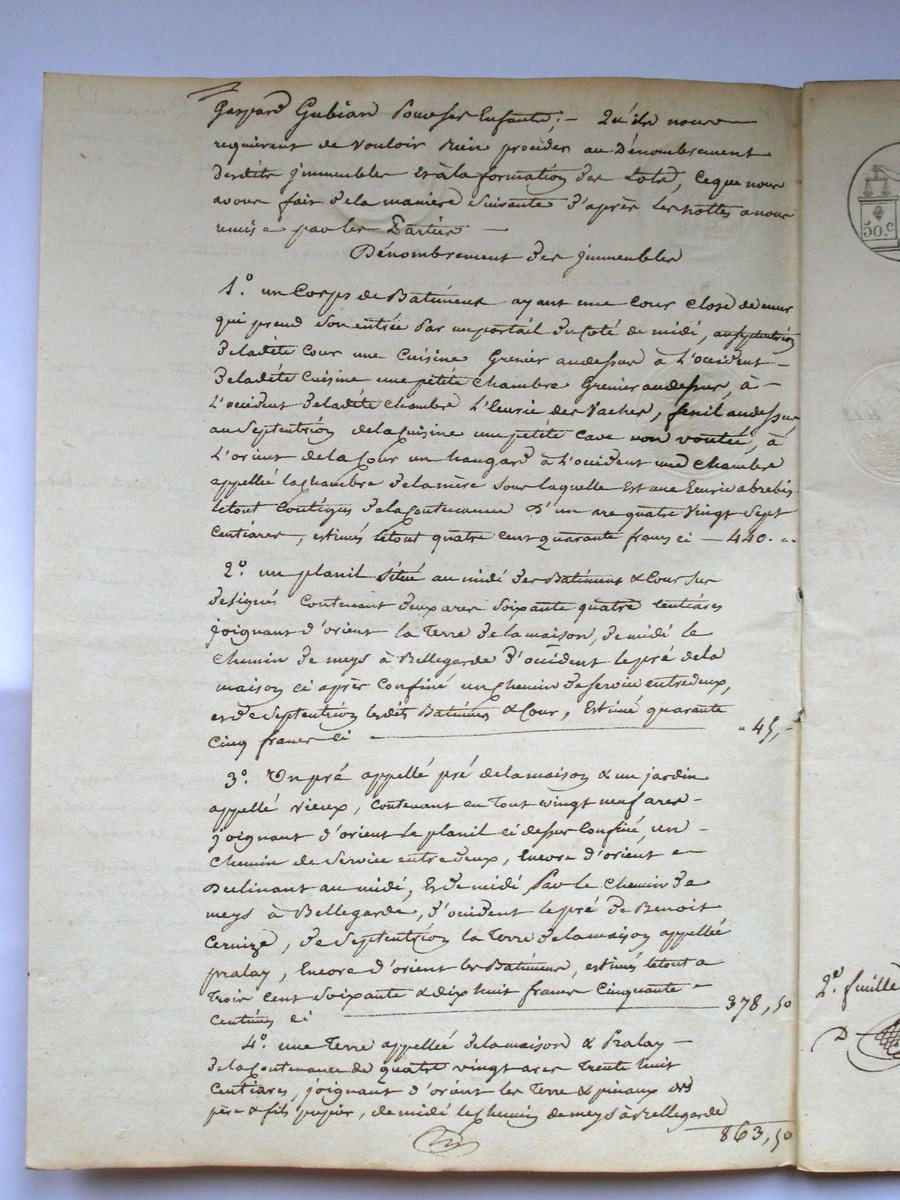 Gaspard Gubian pour ses Enfants; – Qu'ils nous
requierent de vouloir bien proceder au Dénombrement
desdits jmmeubles et à la formation des Lots, ce que nous
avons fait de la maniere suivante d'après les nottes a nous
remise par les Parties –
Dénombrement des jmmeubles
1.° un Corps de Batiment ayant une Cour close de murs
qui prend son entrée par un portail du Coté de midi, au septentrion
de ladite Cour une Cuisine Grenier au dessus à L'occident –
de ladite Cuisine une petite Chambre Grenier au dessus, à –
L'occident de ladite Chambre L'Ecurie des Vaches, fenil au dessus,
au Septentrion de la Cuisine une petite Cave non voutée, à
L'orient de la Cour un hangard à L'occident une Chambre
appellée la Chambre de la mère sous laquelle Est une Ecurie a brebis
le tout Contigus de la Contenance d'un are quatre Vingt Sept
Centiares, estimés le tout quatre cent quarante francs ci – 440. "
2.° un planil situé au midi des Batiment & Cour sus
designés Contenant deux ares soixante quatre Centiares
joignant d'orient la Terre de la maison, de midi le
Chemin de meys à Bellegarde d'occident le pré de la
maison ci après Confiné un Chemin de service entre deux,
et de Septentrion lesdits Batimens & Cour, Estimé quarante
Cinq francs Ci " 45, –
3.° Un pré appellé pré de la maison & un jardin
appellé vieux, Contenant en Tout vingt neuf ares –
joignant d'orient le planil ci dessus Confiné, un –
Chemin de Service entre deux, Encore d'orient
Declinant au midi, Et de midi par le Chemin de
meys à Bellegarde, d'occident le pré de Benoit
, de Septentrion la Terre de la maison appellée
pralay, Encore d'orient les Batimens, estimés le tout a
Trois Cent Soixante & dix huit francs Cinquante
Centimes ci 378,50
4.° une Terre appellée de la maison & Pralay –
de la Contenance de quatre vingt ares Trente huit
Centiares, joignant d'orient les Terre & pinaux des
père & fils , de midi le Chemin de meys à Bellegarde
863,50
50.c
2.e feuille